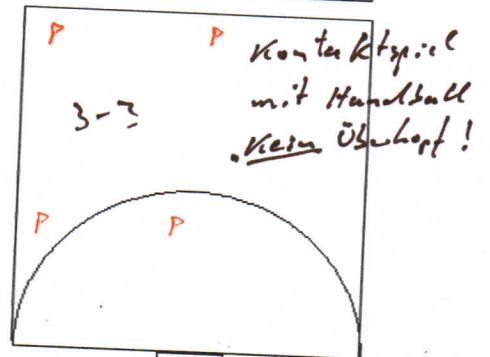 P P
Kontaktspiel
mit Handball
3-3
"Kein Überkopf!
P P